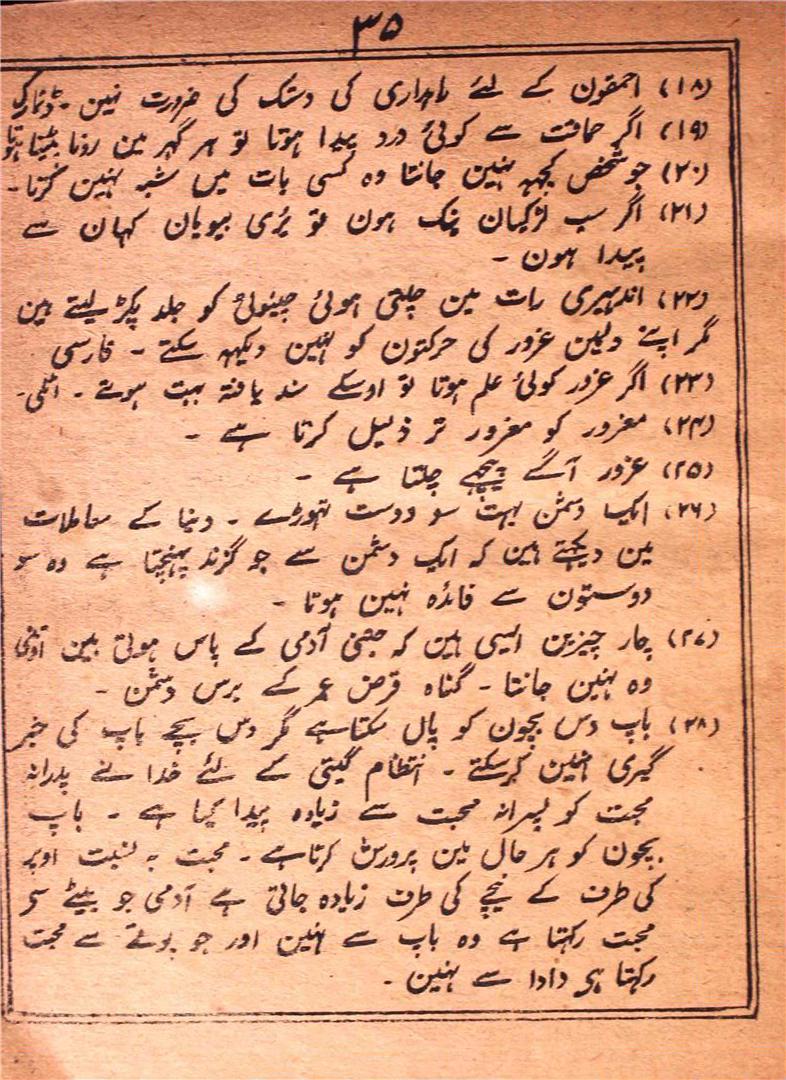 ۳۵
(۱۸) احمقون کے لئے راہداری کی دستک کی ضرورت نہین - ڈنمارک
(۱۹) اگر حماقت سے کوئی درد پیدا ہوتا تو ہر گہر مین رونا پٹینا ہوتا
(۲۰) جو شخص کچہہ نہین جانتا وہ کسی بات میں شبہ نہین کرتا -
(۲۱) اگر سب لڑکیان نیک ہون تو بُری بیویان کہان سے
پیدا ہون -
(۲۲) اندہیری رات مین چلتی ہوئی چیونٹی کو جلد پکڑ لیتے ہین
مگر اپنے دلمین غرور کی حرکتون کو نہین دیکہہ سکتے - فارسی
(۲۳) اگر غرور کوئی علم ہوتا تو اوسکے سند یافتہ بہت ہوتے - اٹلی -
(۲۴) مغرور کو مغرور تر ذلیل کرتا ہے -
(۲۵) غرور آگے پیچھے چلتا ہے -
(۲۶) ایک دشمن بہت سو دوست تہوڑے - دنیا کے معاملات
مین دیکہتے ہین کہ ایک دشمن سے جو گزند پہنچتا ہے وہ سو
دوستون سے فائدہ نہین ہوتا -
(۲۷) چار چیزین ایسی ہین کہ جتنی آدمی کے پاس ہوتی ہین اوتنی
وہ نہین جانتا - گناہ قرض عمر کے برس دشمن -
(۲۸) باپ دس بچون کو پال سکتا ہے مگر دس بچے باپ کی خبر
گیری نہین کرسکتے - انتظام گیتی کے لئے خدا نے پدرانہ
محبت کو پسرانہ محبت سے زیادہ پیدا کیا ہے - باپ
بچون کو ہر حال مین پرورش کرتا ہے - محبت بہ نسبت اوپر
کی طرف کے نیچے کی طرف زیادہ جاتی ہے آدمی جو بیٹے سے
محبت رکہتا ہے وہ باپ سے نہین اور جو پوتے سے محبت
رکہتا ہی دادا سے نہین -